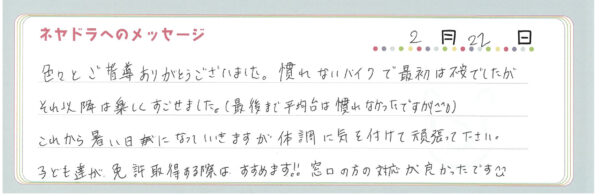 ネヤドラへのメッセージ
2月22日
色々とご指導ありがとうございました。慣れないバイクで最初は不安でしたが
それ以降は楽しくすごせました。(最後まで平均台は慣れなかったですが㍉)
これから暑い日々になっていきますが体調に気を付けて頑張って下さい。
子ども達が免許取得する際は、すすめます!!窓口の方の対応が良かったです